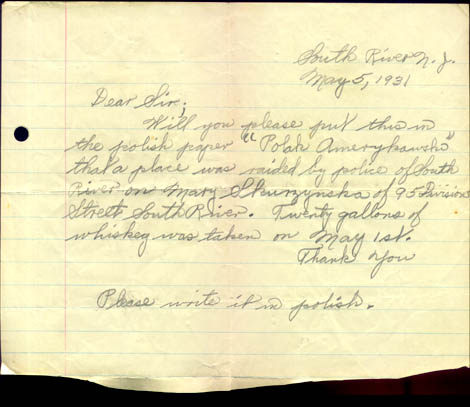 South River N. J.
May 5, 1931
Dear Sir;
Will you please put this in
the polish paper "Polak Amerykanski"
that a place was raided by police of South
River on Mary Skurzynska of 95 Division
Street South River. Twenty gallons of
whiskey was taken on May 1st.
Thank You
Please write it in polish.